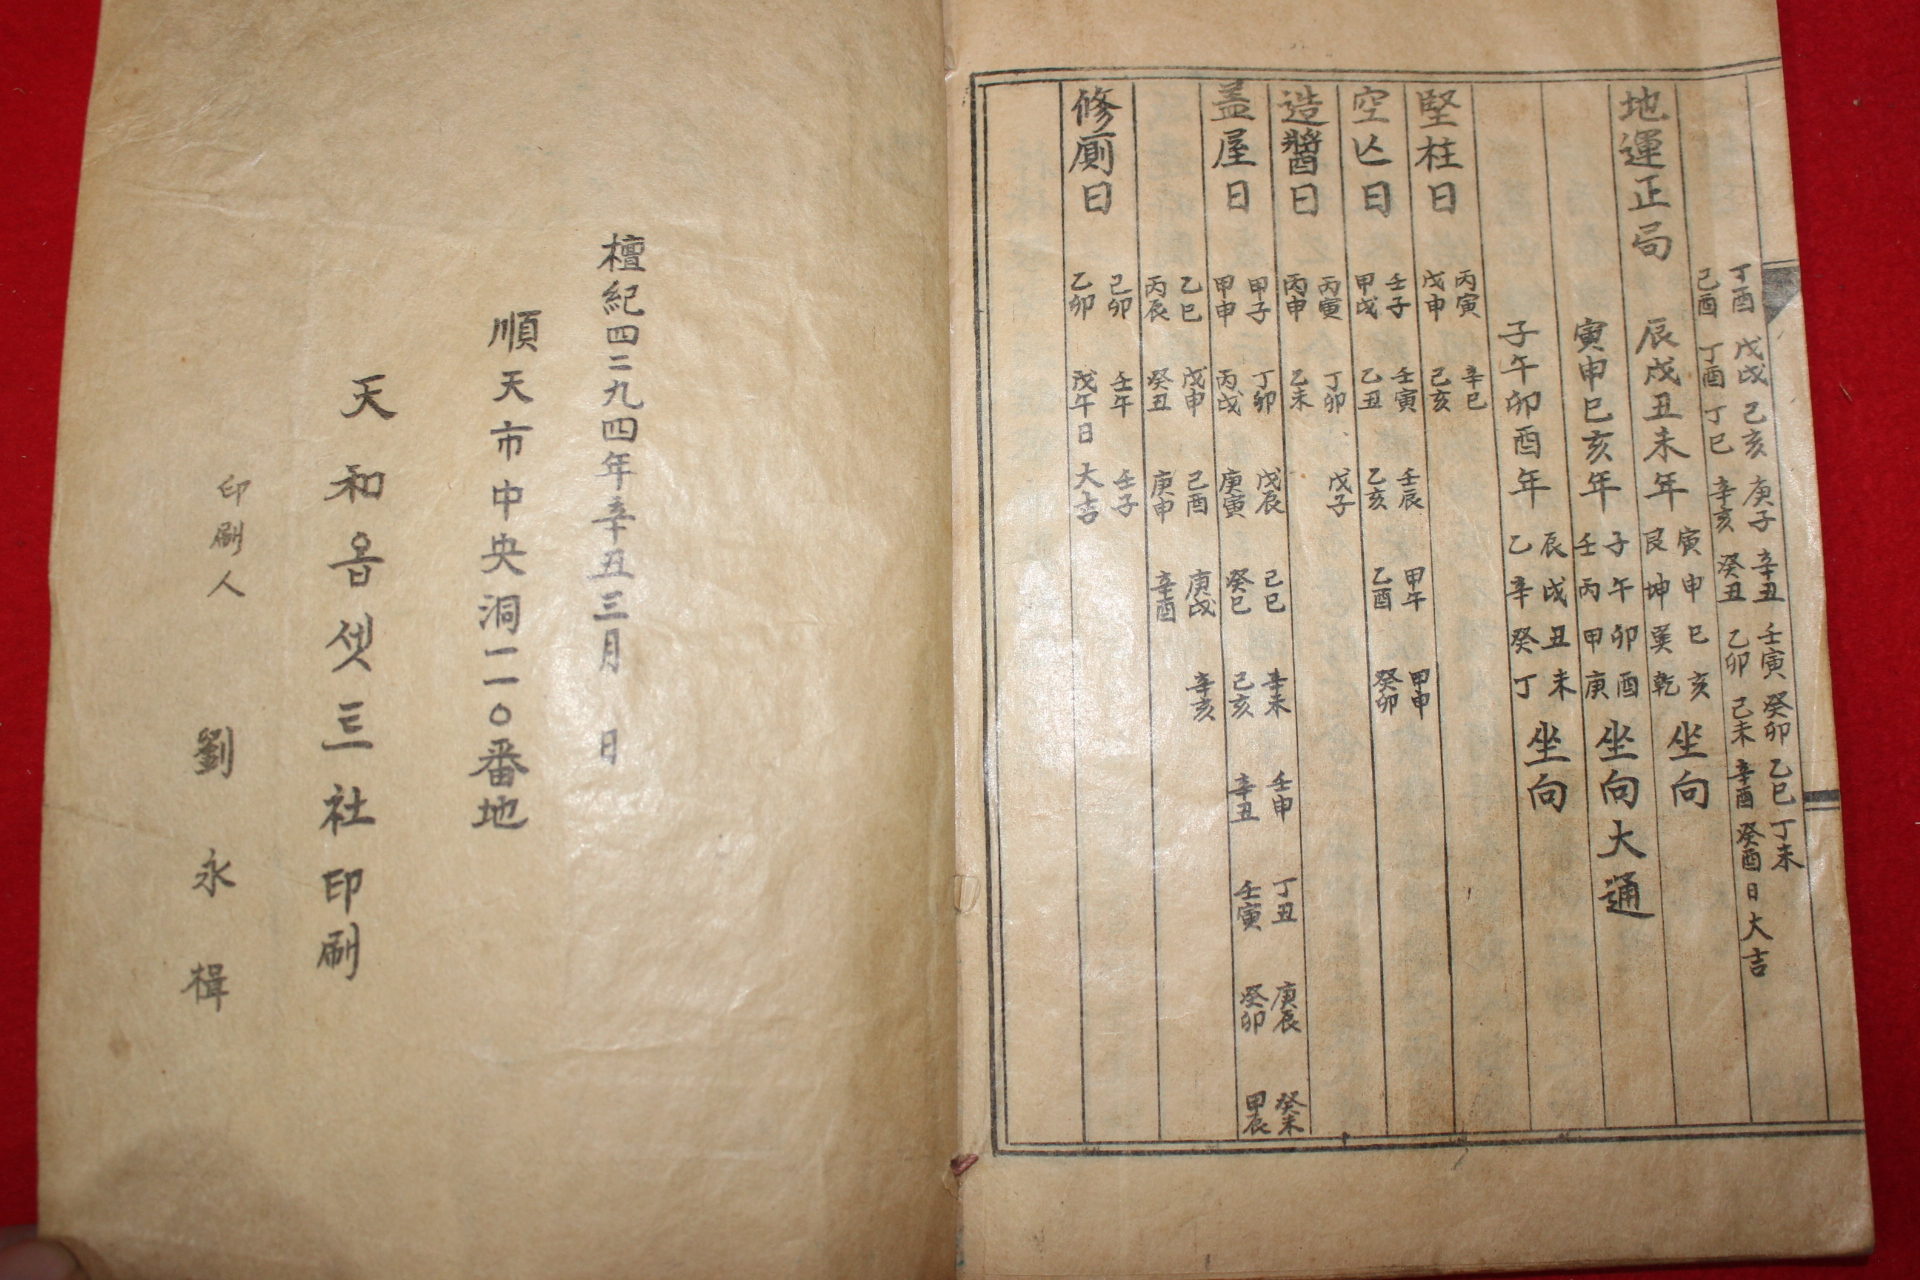 丁酉 戊戌 己亥 庚子 辛丑 壬寅 癸卯 乙巳 丁未
己酉 丁酉 丁巳 辛亥 癸丑 乙卯 己未 辛酉 癸酉日大吉
地運正局 辰戌丑未年 寅申巳亥 艮坤巽乾 坐向
寅申巳亥年 子午卯酉 壬丙甲庚 坐向大通
子午卯酉年 辰戌丑未 乙辛癸丁 坐向
堅柱日 丙寅 辛巳
戊申 己亥
空亡日 壬子 壬寅 壬辰 甲午 甲申
甲戌 乙丑 乙亥 乙酉 癸卯
造醬日 丙寅 丁卯 戊子
丙申 乙未
盖屋日 甲子 丁卯 戊辰 己巳 辛未 壬申 丁丑 庚辰 癸未
甲申 丙戌 庚寅 癸巳 己亥 辛丑 壬寅 癸卯 甲辰
乙巳 戊申 己酉 庚戌 辛亥
丙辰 癸丑 庚申 辛酉
修廁日 己卯 壬午 壬子
乙卯 戊午日 大吉
檀紀四二九四年辛丑三月 日
順天市中央洞一一〇番地
天和옵셋三社印刷
印刷人 劉永楫